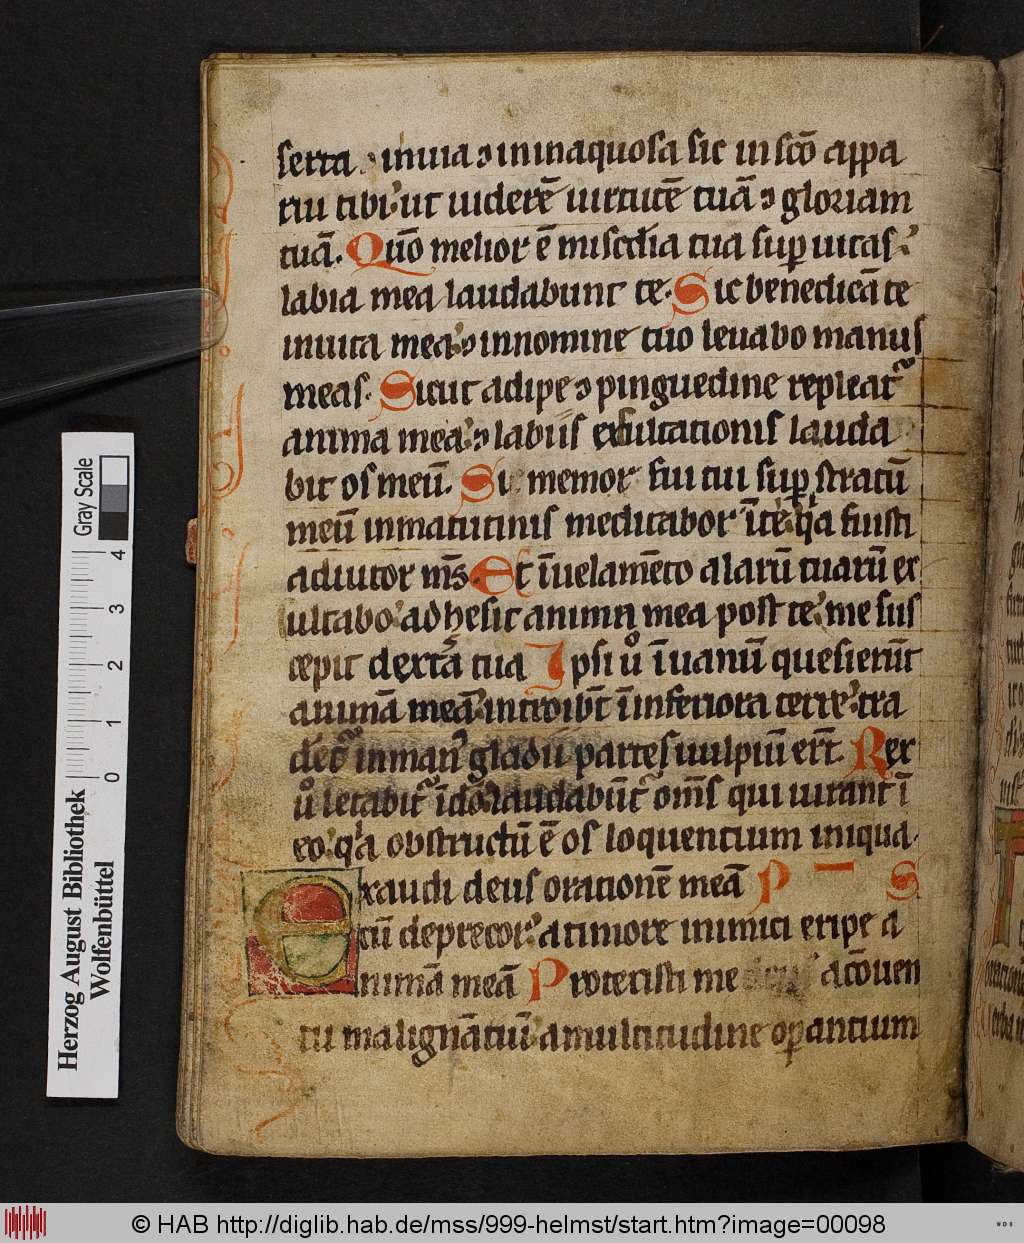 serta ⁊ inuia ⁊ in inaquosa sic in scō appa
rui tibi ut uiderē uirtutē tuā ⁊ gloriam
tuā. Quō melior ē miscdia tua sup uitas
labia mea laudabunt te. Sic benedicā te
in uita mea ⁊ in nomine tuo leuabo manus
meas. Sicut adipe ⁊ pinguedine repleat᷑
anima mea ⁊ labiis exsultationis lauda
bit os meū. Si memor fui tui sup stratū
meū in matutinis meditabor ī te q̇a fuisti
adiutor m̄s. Et ī uelamēto alarū tuarū ex
ultabo adhesit anima mea post te me sus
cepit dextͣa tua Ipsi uͦ ī uanū quesierūt
animā meā introibūt ī inferiora terre tra
dēt᷑ in man᷒ gladii partes uulpiū erūt. Rex
uͦ letabit᷑ ī do laudabūt᷑ om̄s qui iurant ī
eo q̇a obstructū ē os loquentium iniqua.
Exaudi deus orationē meā P S
cū deprecor a timore inimici eripe a
nimā meā Protexisti me a cōuen
tu malignātiū a multitudine opantium
Gray Scale
0 1 2 3 4
Herzog August Bibliothek
Wolfenbüttel
© HAB http://diglib.hab.de/mss/999-helmst/start.htm?image=00098
WDB